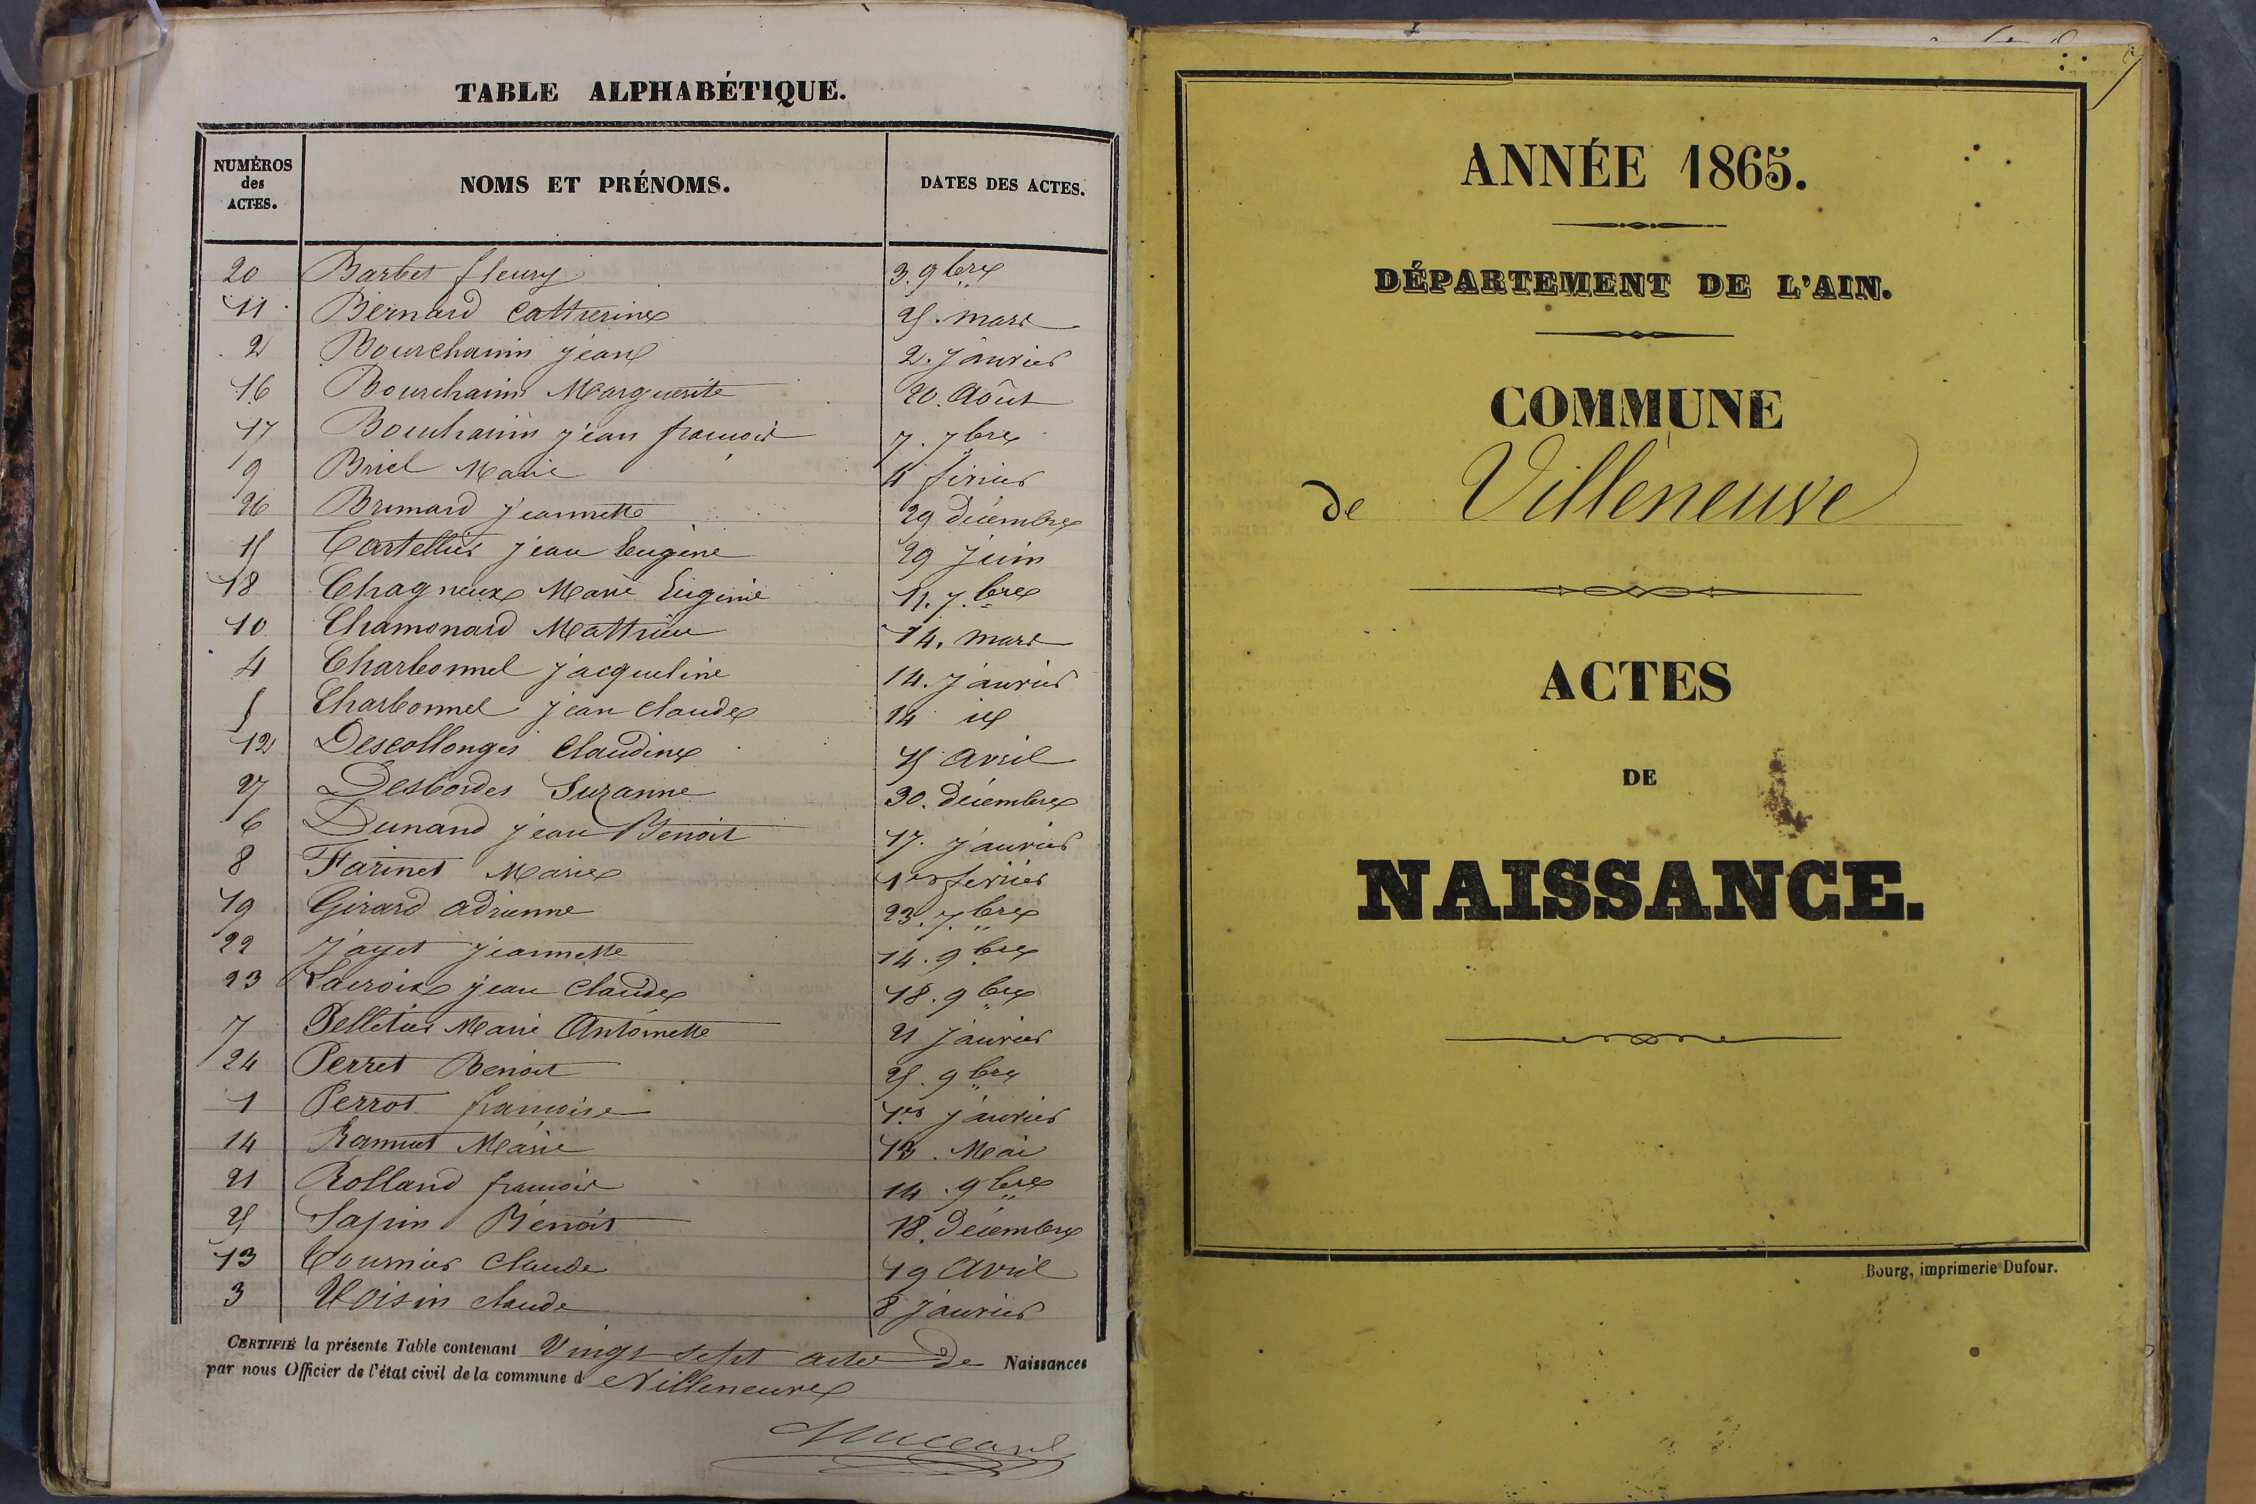 TABLE ALPHABÉTIQUE.
NUMÉROS des ACTES. NOMS ET PRÉNOMS. DATES DES ACTES.
20 Barbet fleury 3. 9bre
11 Bernard Catherine 25. mars
2 Bourchanin jean 2. janvier
16 Bourchanin Marguerite 20. Août
17 Bourchanin jean françois 7. 7bre
9 Briel Marie 4 février
26 Brunard jeannette 29 décembre
15 Cartellier jean Eugène 29 juin
18 Chagneux Marie Eugénie 11. 7.bre
10 Chamonard Mathieu 14. mars
4 Charbonnel jacqueline 14. janvier
5 Charbonnel jean Claude 14 id
12 Descollonges Claudine 15 avril
27 Desbordes Suzanne 30. décembre
6 Dunand jean Benoit 17. janvier
8 Farinet Marie 1er février
19 Girard adrienne 23. 7.bre
22 jayet jeannette 14. 9bre
23 Lacroix jean Claude 18. 9bre
7 Pelletier Marie Antoinette 21 janvier
24 Perret Benoit 25. 9bre
1 Perrot françoise 1er janvier
14 Marie 13. Mai
21 Rolland françois 14. 9bre
25 Sapin Benoit 18. décembre
13 Tournier Claude 19 Avril
3 Voisin claude 8 janvier
CERTIFIÉ la présente Table contenant Vingt sept actes de Naissances
par nous Officier de l'état civil de la commune d Villeneuve
ANNÉE 1865.
DÉPARTEMENT DE L'AIN.
COMMUNE
de Villeneuve
ACTES
DE
NAISSANCE.
Bourg, imprimerie Dufour.